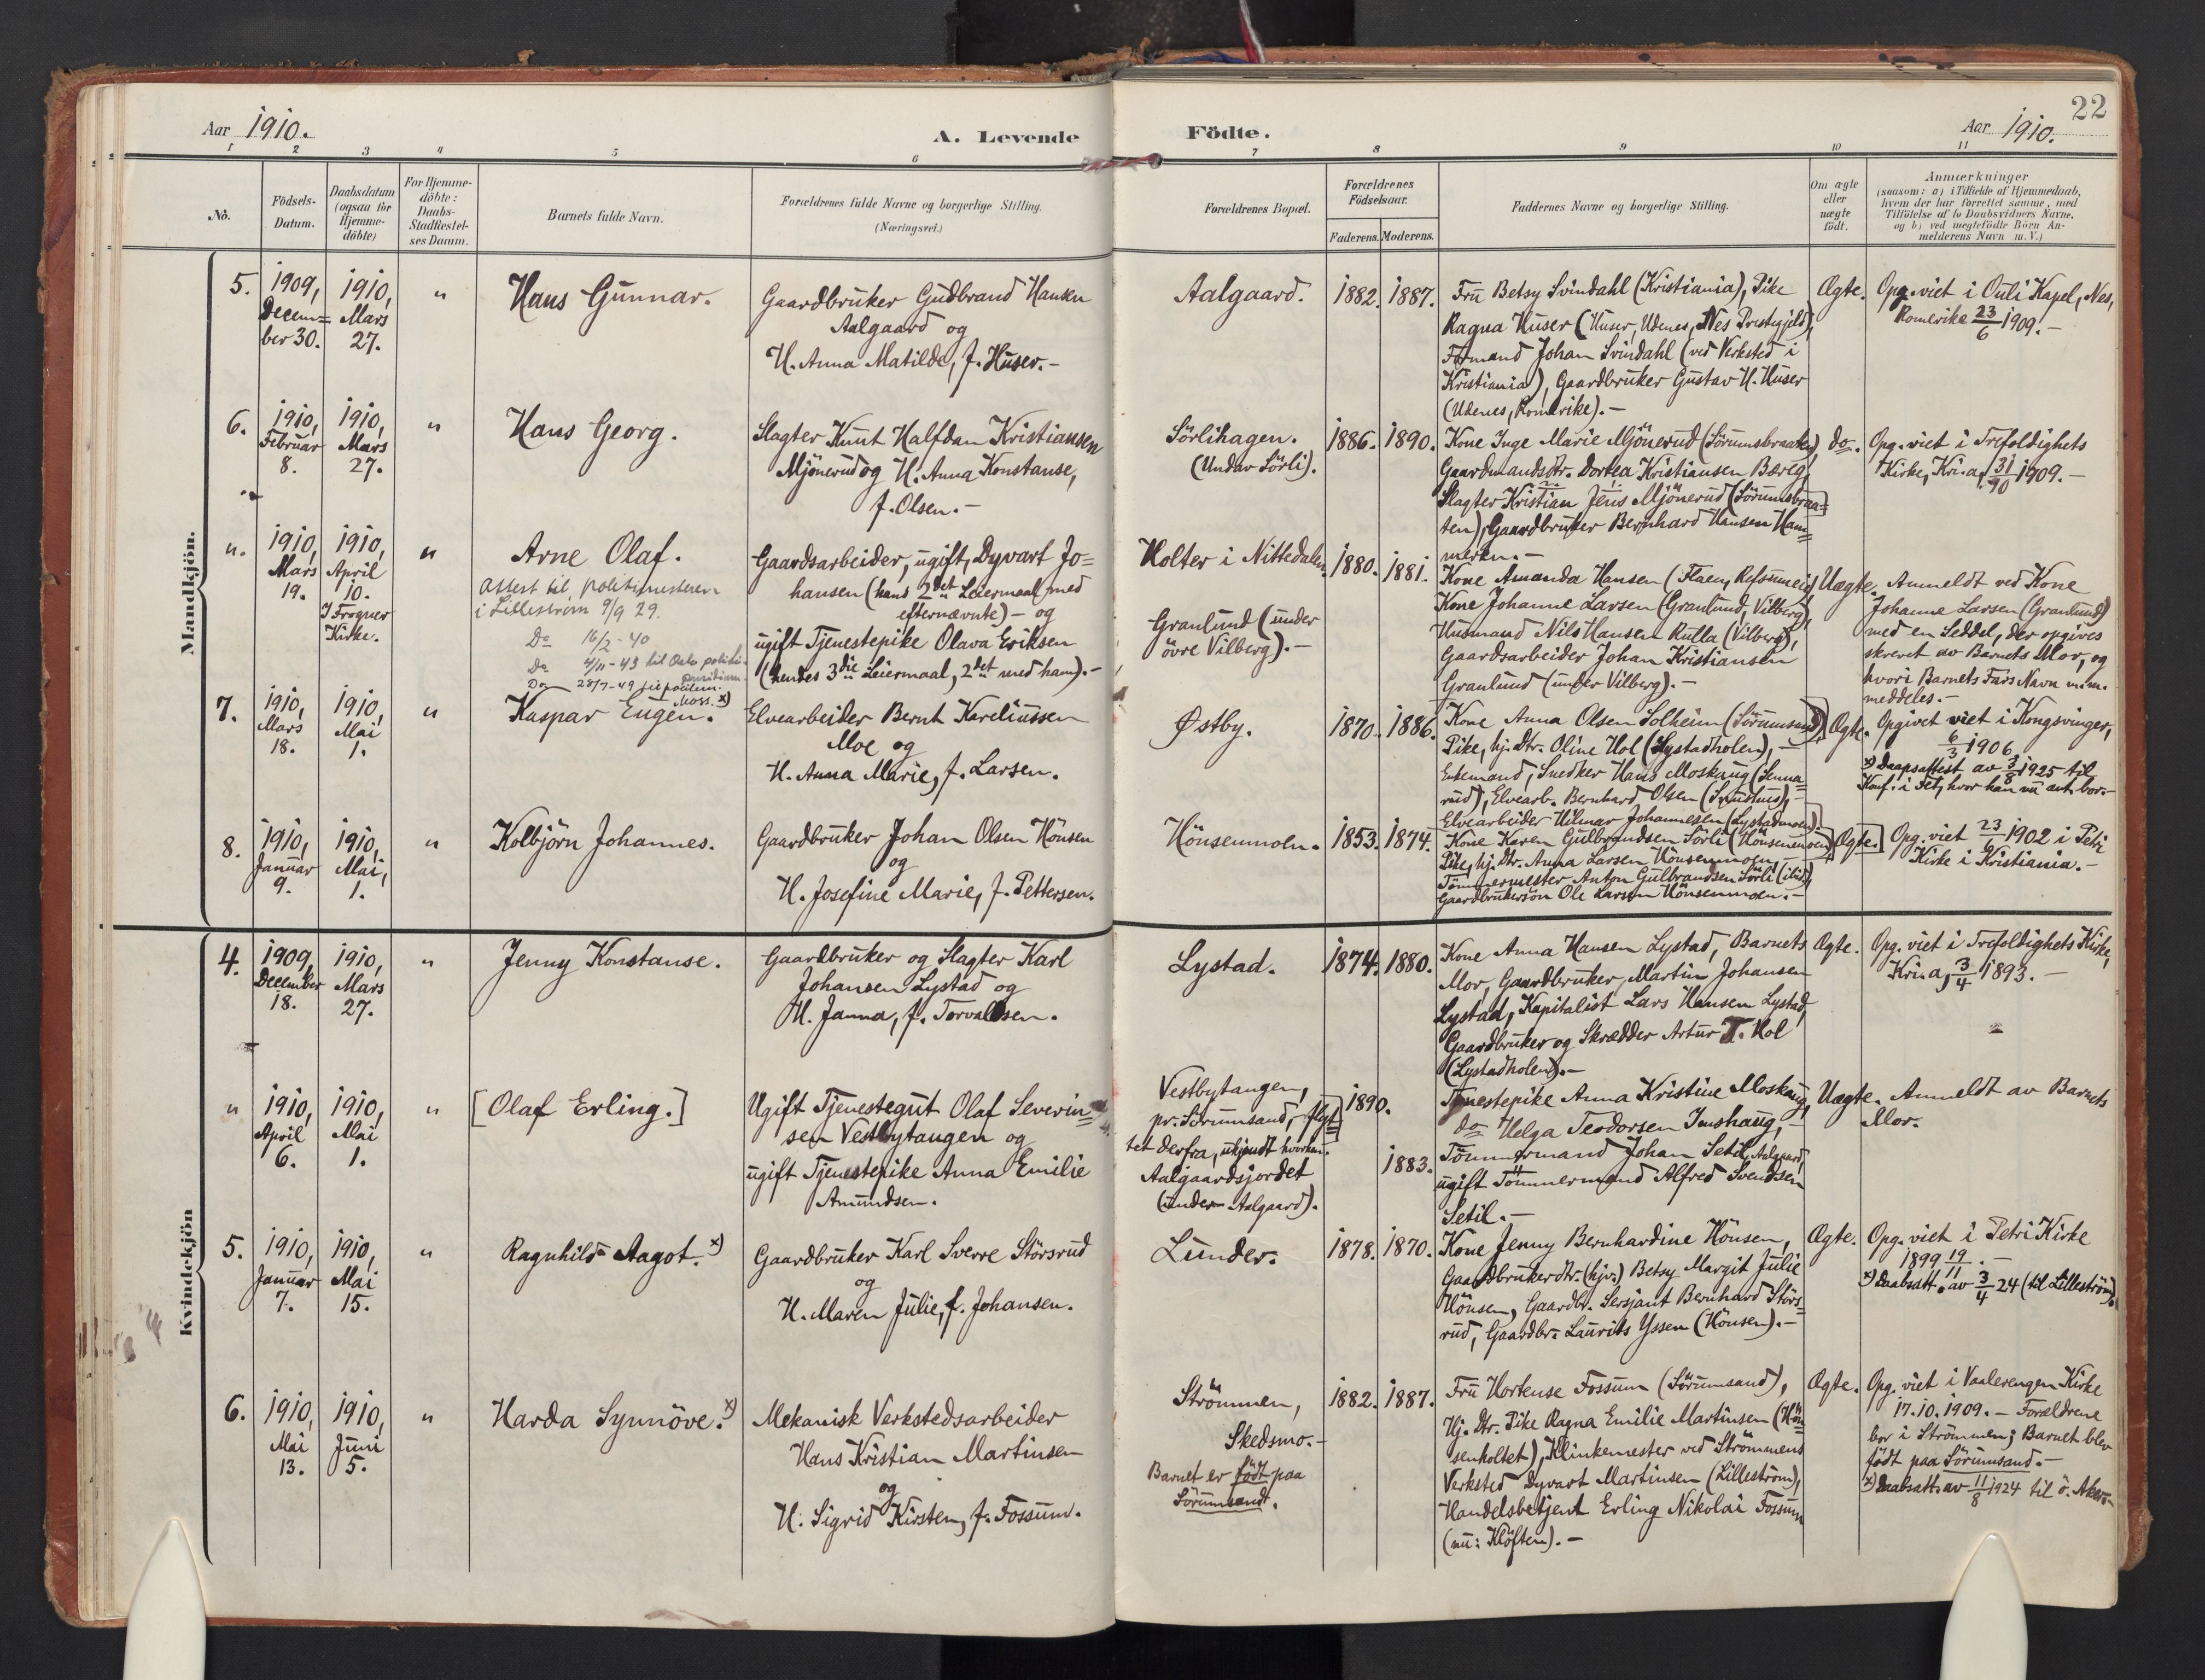 Aar 1910.
A. Levende
Födte.
Aar 1910.
22
1
2
3
4
5
6
7
8
9
10
11
No.
Födsels-
Datum.
Daabsdatum
(ogsaa for
Hjemme-
döbte)
For Hjemme-
döbte:
Daabs-
Stadfæstel-
ses Datum.
Barnets fulde Navn.
Forældrenes fulde Navne og borgerlige Stilling.
(Næringsvei.)
Forældrenes Bopæl.
Forældrenes
Födselsaar.
Faderens.
Moderens.
Faddernes Navne og borgerlige Stilling.
Om ægte
eller
uægte
födt.
Anmærkninger
(saasom: a) i Tilfælde af Hjemmedaab,
hvem der har forrettet samme, med
Tilföielse af to Daabsvidners Navne,
og b) ved uægtefödte Börn An-
melderens Navn m. V.)
Mandkjön.
5.
1909,
Decem=
ber 30.
1910,
Mars
27.
"
Hans Gunnar.
Gaardbruker Gudbrand Hansen
Aalgaard og
H. Anna Matilde, f. Huser.-
Aalgaard.
1882.
1887.
Fru Betsy Svindahl (Kristiania), Pike
Ragna Huser (Huser, Udenes, Nes Prestegjeld),
Formand Johan Svindahl (ved Verksted i
Kristiania), Gaardbruker Gustav H. Huser
(Udenes, Romerike).-
Ægte.
Opg. viet i Ouli Kapel, Nes,
Romerike 23/6 1909.-
6.
1910,
Februar
8.
1910,
Mars
27.
"
Hans Georg.
Slagter Knut Halfdan Kristiansen
Mjönerud og H. Anna Konstanse,
f. Olsen.-
Sörlihagen.
(Under Sörli).
1886.
1890.
Kone Inge Marie Mjönerud (Sörumsbraaten),
Gaardmandsdtr. Dortea Kristiansen Bæreg,
Slagter Kristian Jens Mjönerud (Sörumsbraa=
ten), Gaardbruker Bernhard Hansen Ham=
meren.-
do.
Opg. viet i Trefoldighets
Kirke, Kri.a, 31/10 1909.-
".
1910,
Mars
19.
1910,
April
10.
I Frogner
Kirke.
"
Arne Olaf.
Attest til politimesteren
i Lilleström 9/9 29.
Do 16/2-40
Do 4/11-43 til Oslo politi-
præsidium.
Do 28/7-49
Moss.
Gaardsarbeider, ugift, Dyvart Jo=
hansen (hans 2det Leiermaal med
efternævnte) - og
ugift Tjenestepike Olava Eriksen
(hendes 3die Leiermaal, 2det med ham).-
Holter i Nittedalen.
Granlund (under
övre Vilberg).-
1880.
1881.
Kone Amanda Hansen
Kone Johanne Larsen (Granlund, Vilberg),
Husmand Nils Hansen Rulla (Vilberg),
Gaardsarbeider Johan Kristiansen
Granlund (under Vilberg).-
Uægte.
Anmeldt ved Kone
Johanne Larsen (Granlund)
med en Seddel, der opgives
skrevet av Barnets Mor, og
hvori Barnets Fars Navn m.m.
meddeles.-
7.
1910,
Mars
18.
1910,
Mai
1.
"
Kaspar Eugen. x)
Elvearbeider Bernt Kareliussen
Moe og
H. Anna Marie, f. Larsen.
Østby.
1870.
1886.
Kone Anna Olsen Solheim (Sörumsand),
Pike, hj. Dtr. Oline Hol (Lystadholen), -
Enkemand, Snedker Hans Moskaug (Senne=
rud), Elvearb. Bernhard Olsen
Elvearbeider Hilmar Johannessen (Lystadmoen).
Ægte.
Opgivet viet i Kongsvinger,
6/3 1906.
x) Daapsattest av 3/8 1925 til
Konf. i Fet, hvor han nu ant. bor.-
8.
1910,
Januar
9.
1910,
Mai,
1.
"
Kolbjörn Johannes.
Gaardbruker Johan Olsen Hönsen
og
H. Josefine Marie, f. Pettersen.
Hönsenmoen.
1853.
1874.
Kone Karen Gulbrandsen Sörli (Hönsenmoen),
Pike, hj. Dtr. Anna Larsen Hönsenmoen,
Tömmermester Anton Gulbrandsen Sörli (ibid),
Gaardbrukersön Ole Larsen Hönsenmoen.-
Ægte.
Opg. viet 23/6 1902 i Petri
Kirke i Kristiania.-
Kvindekjön
4.
1909,
December
18.
1910,
Mars
27.
"
Jenny Konstanse.
Gaardbruker og Slagter Karl
Johansen Lystad og
H. Janna, f. Torvaldsen.
Lystad.
1874.
1880.
Kone Anna Hansen Lystad, Barnets
Mor, Gaardbruker Martin Johansen
Lystad, Kapitalist Lars Hansen Lystad,
Gaardbruker og Skrædder Artur T. Hol
(Lystadholen).-
Ægte.
Opg. viet i Trefoldighets Kirke,
Kri.a, 3/4 1893.-
"
1910,
April
6.
1910,
Mai
1.
"
[Olaf Erling.]
Ugift Tjenestegut Olaf Severin=
sen Vestbytangen og
ugift Tjenestepike Anna Emilie
Amundsen.
Vestbytangen,
pr. Sörumsand, flyt=
tet derfra, ukjendt hvorhen.
Aalgaardsjordet
(under Aalgaard).
1890.
1883.
Tjenestepike Anna Kristine Moskaug,
do Helga Teodorsen Imshaug, -
Tömmermand Johan Setil, Aalgaard,
ugift Tömmermand Alfred Svendsen
Setil.-
Uægte.
Anmeldt av Barnets
Mor.
5.
1910,
Januar
7.
1910,
Mai
15.
"
Ragnhild Aagot. x)
Gaardbruker Karl Sverre Störsrud
og
H. Maren Julie, f. Johansen.
Lunder.
1878.
1870.
Kone Jenny Bernhardine Hönsen,
Gaardbrukerdtr. (hjv.) Betsy Margit Julie
Hönsen, Gaardbr. Sersjant Bernhard Störs=
rud, Gaardbr. Laurits Yssen (Hönsen).-
Ægte.
Opg. viet i Petri Kirke
1899 19/11.-
x) Daabsatt. av 3/4 24 (til Lilleström).
6.
1910,
Mai
13.
1910,
Juni
5.
"
Harda Synnöve. x)
Mekanisk Verkstedsarbeider
Hans Kristian Martinsen
og
H. Sigrid Kirsten, f. Fossum.
Strömmen,
Skedsmo.-
Barnet er födt paa
Sörumsand.
1882.
1887.
Fru Hortense Fossum (Sörumsand),
Hj. Dtr. Pike Ragna Emilie Martinsen (Hön=
senholtet), Klinkemester ved Strömmens
Verksted Dyvart Martinsen (Lilleström),
Handelsbetjent Erling Nikolai Fossum
(nu: Klöften).-
Ægte.
Opg. viet i Vaalerengen Kirke
17.10.1909.- Forældrene
bor i Strömmen; Barnet blev
födt paa Sörumsand.-
x) Daabsatt. av 11/8 1924 til ö. Aker.-